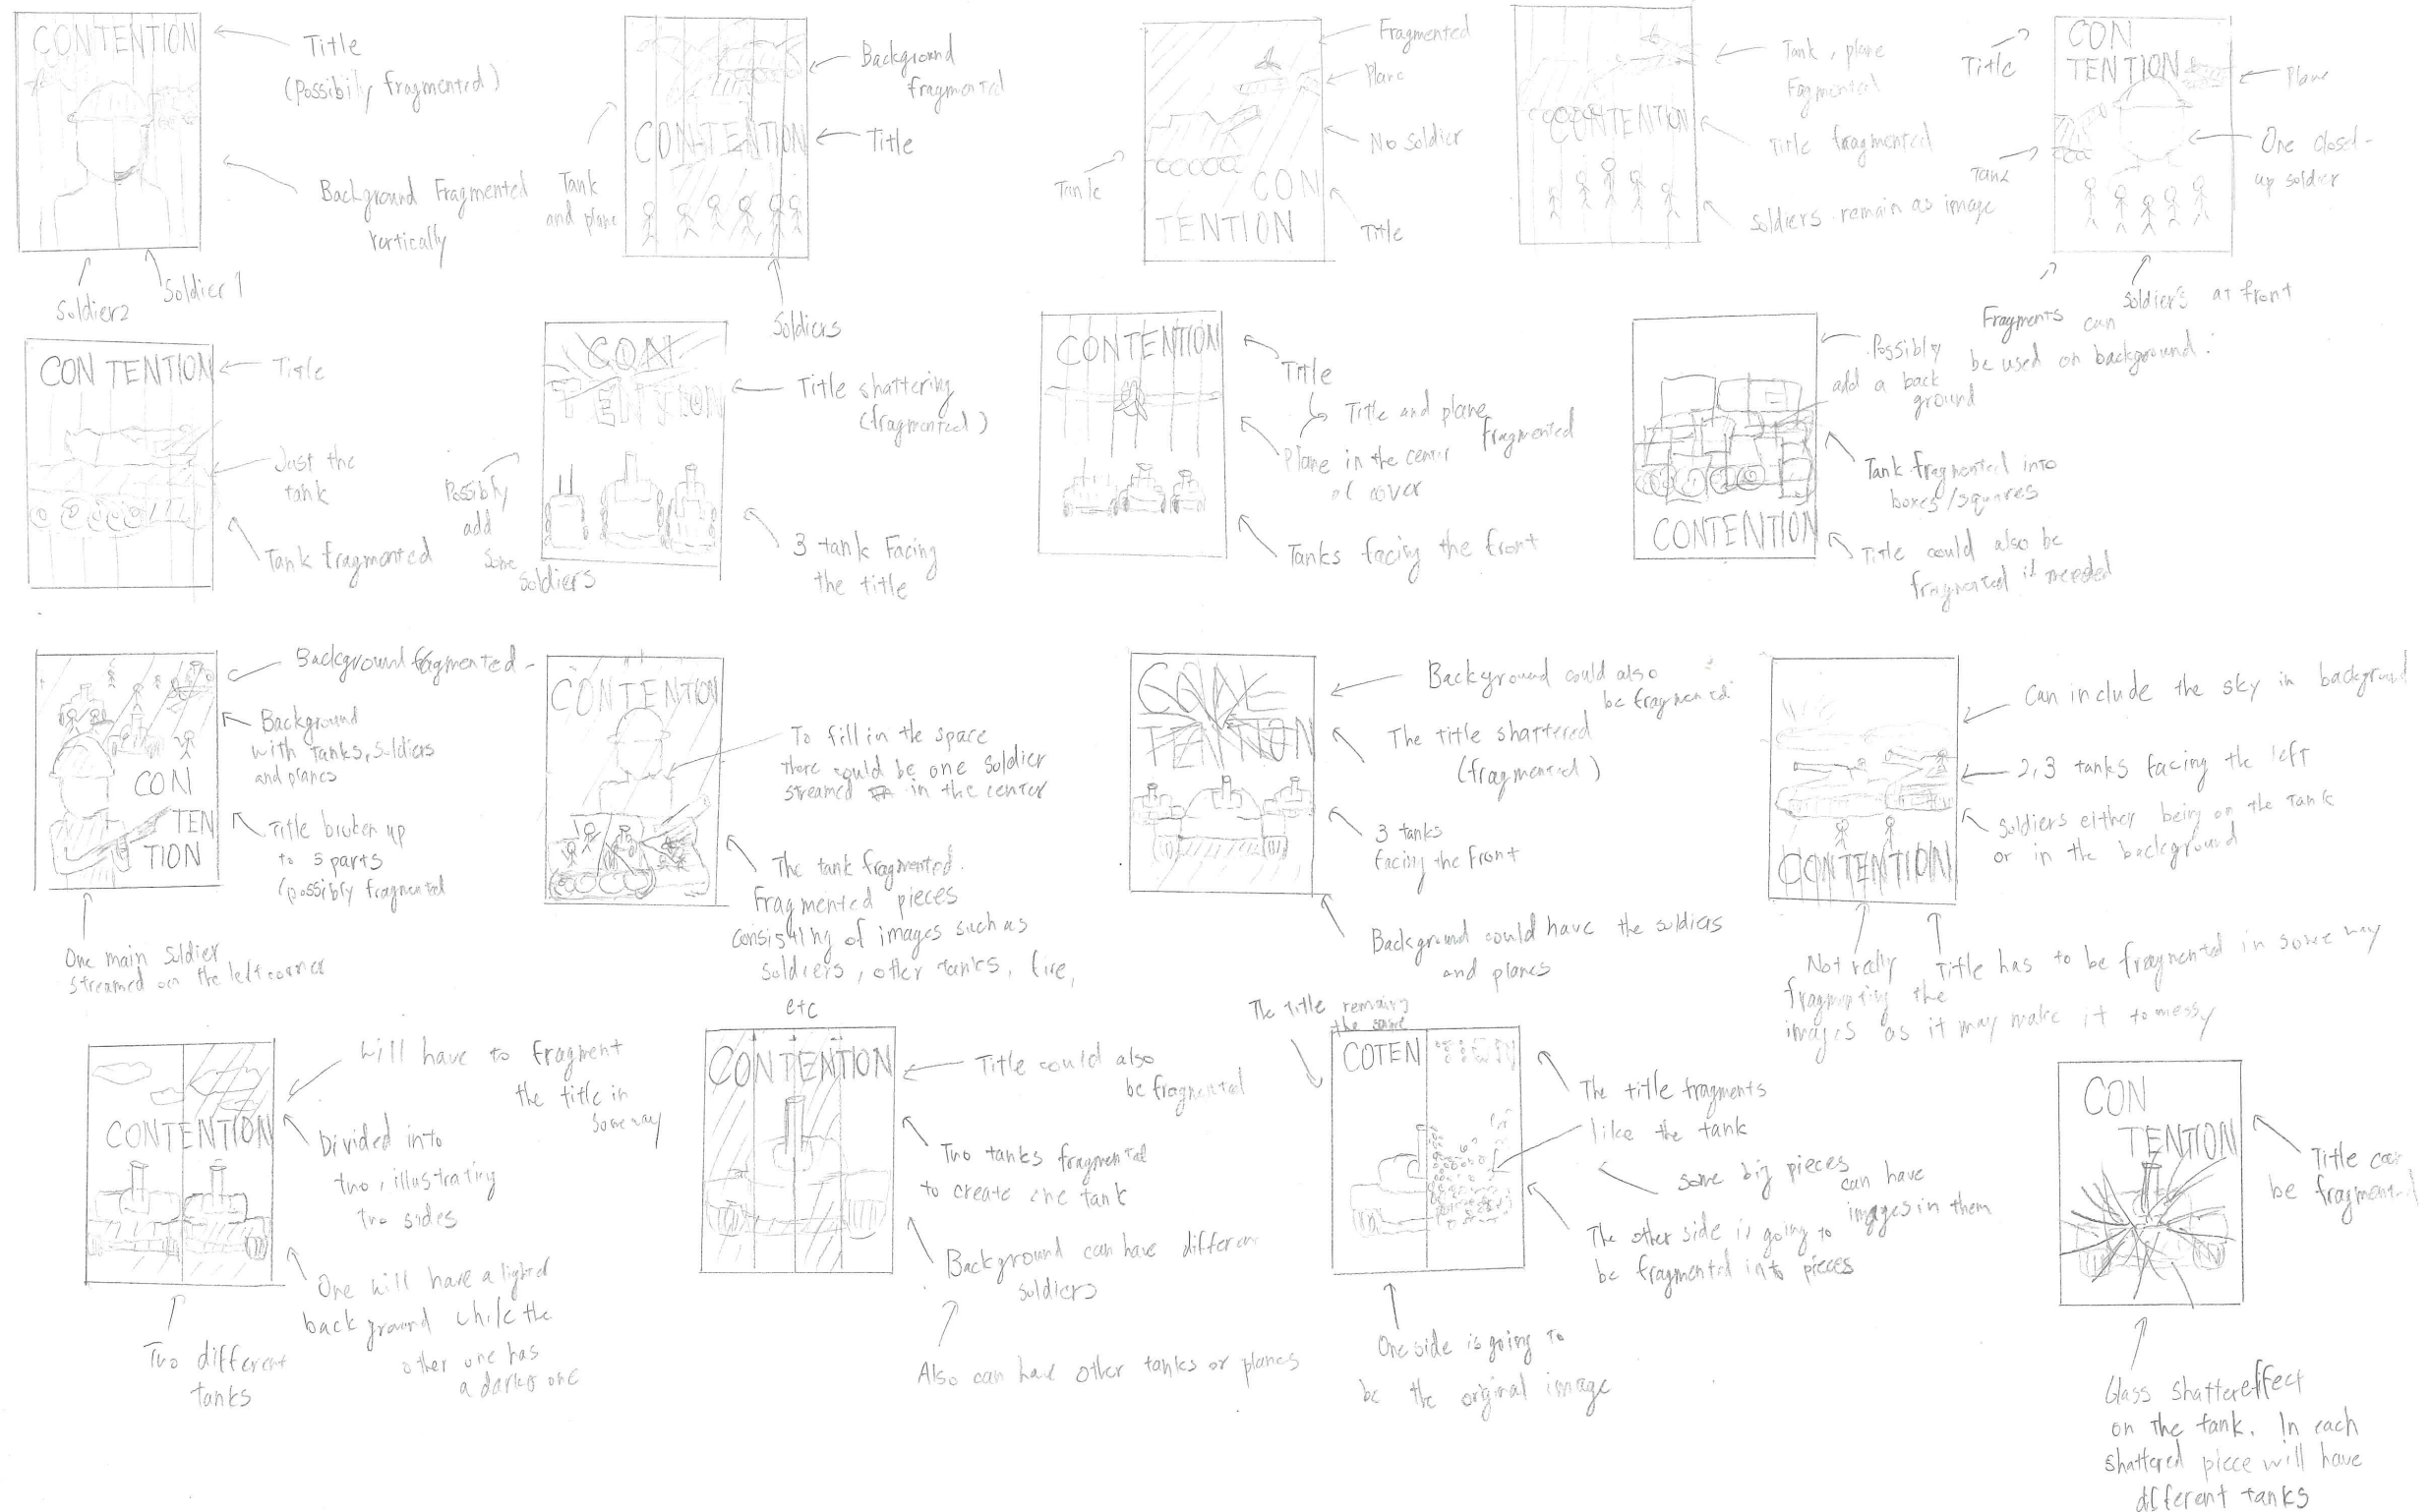 CONTENTION
Title
(Possibily fragmented)
Background Fragmented
Vertically
Soldier 1
Soldier2
CONTENTION
Background
fragmented
Title
Tank
and plane
Soldiers
Fragmented
Plane
No soldier
Tank
CON
TENTION
Title
CONTENTION
Tank, plane
Fagmented
Title fragmented
Soldiers remain as image
CON
TENTION
Title
Plane
One closed-
up soldier
Tank
Soldiers at front
Fragments can
be used on background.
CON TENTION
Title
Just the
tank
Tank fragmented
CON
TENTION
Title shattering
(fragmented)
Possibly
add
some
soldiers
3 tank Facing
the title
CONTENTION
Title
Title and plane
fragmented
Plane in the center
of cover
Tanks facing the front
CONTENTION
Possibly
add a back
ground
Tank fragmented into
boxes/squares
Title could also be
fragmented if needed
CON
TEN
TION
Background fragmented
Background
with tanks, soldiers
and planes
Title broken up
to 3 parts
(possibly fragmented
One main soldier
streamed on the left corner
CONTENTION
To fill in the space
there could be one soldier
streamed in the center
The tank fragmented.
Fragmented pieces
consisting of images such as
soldiers, other tanks, fire,
etc
CON
TENTION
Background could also
be fragmented
The title shattered
(fragmented)
3 tanks
facing the front
Background could have the soldiers
and planes
CONTENTION
Can include the sky in background
2,3 tanks facing the left
Soldiers either being on the tank
or in the background
Title has to be fragmented in some way
Not really
fragmenting the
images as it may make it to messy
CONTENTION
Will have to fragment
the title in
some way
Divided into
two, illustrating
two sides
One will have a lighted
background while the
other one has
a darker one
Two different
tanks
CONTENTION
Title could also
be fragmented
Two tanks fragmented
to create one tank
Background can have different
soldiers
Also can have other tanks or planes
The title remains
the same
COTEN
The title fragments
like the tank
some big pieces
can have
images in them
The other side is going to
be fragmented into pieces
One side is going to
be the original image
CON
TENTION
Title can
be fragmented
Glass shatter effect
on the tank. In each
shattered piece will have
different tanks